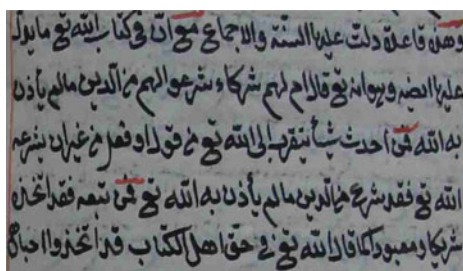 وهذه قاعدة دلت عليها السنة والاجماع مع ان في كتاب الله تع ما يدل
عليها ايضا وهو انه تع قال ام لهم شركاء شرعوا لهم من الدين ما لم يأذن
به الله فمن احدث شيأ يتقرب به الى الله تع من قول او فعل من غير ان يشرعه
الله تع فقد شرع من الدين ما لم يأذن به الله تع فمن تبعه فقد اتخذه
شريكا ومعبودا كما قال الله تع في حق اهل الكتاب قد اتخذوا احبار